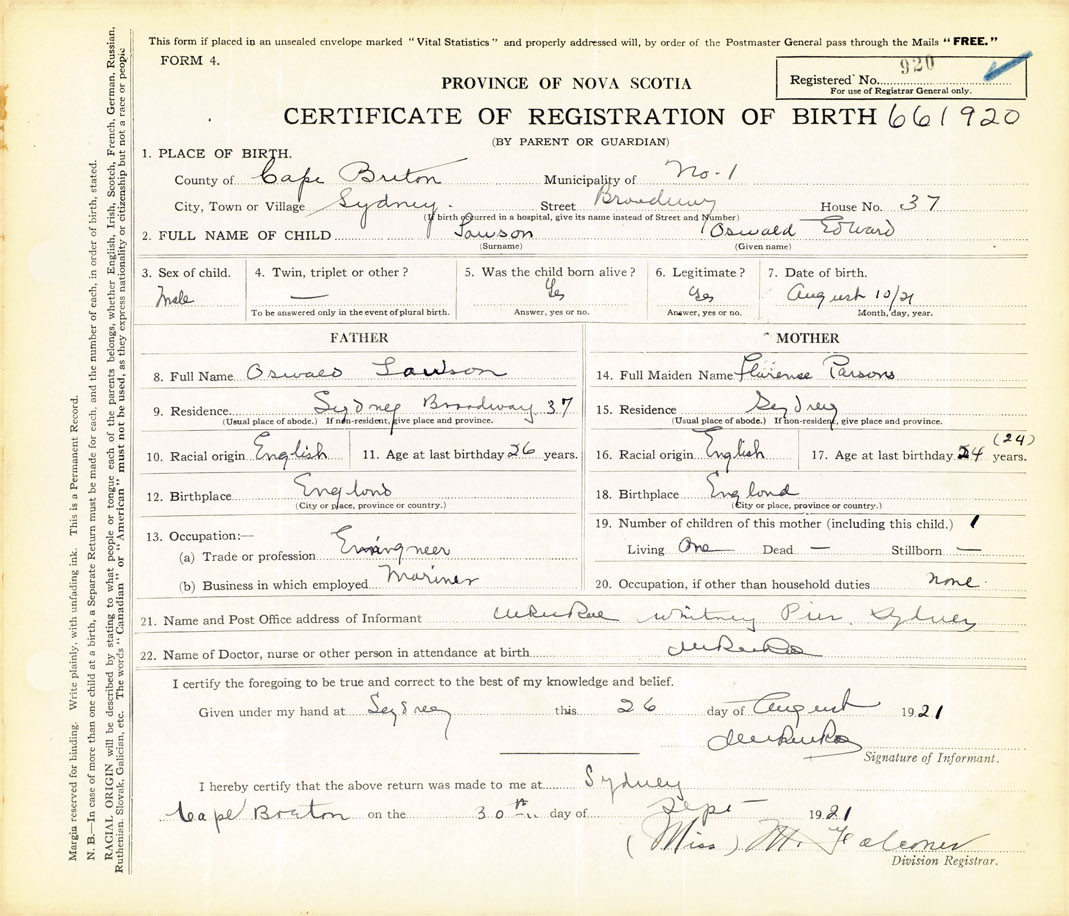 This form if placed in an unsealed envelope marked “Vital Statistics” and properly addressed will, by order of the Postmaster General pass through the Mails “FREE.”
FORM 4.
Registered No. 920
For use of Registrar General only.
PROVINCE OF NOVA SCOTIA
CERTIFICATE OF REGISTRATION OF BIRTH 661920
(BY PARENT OR GUARDIAN)
1. PLACE OF BIRTH.
County of Cape Breton Municipality of No. 1
City, Town or Village Sydney. Street Broadway House No. 37
(If birth occurred in a hospital, give its name instead of Street and Number)
2. FULL NAME OF CHILD Lawson Oswald Edward
(Surname) (Given name)
3. Sex of child. 4. Twin, triplet or other? 5. Was the child born alive? 6. Legitimate? 7. Date of birth.
Male — Yes Yes August 10/21
To be answered only in the event of plural birth. Answer, yes or no. Answer, yes or no. Month, day, year.
FATHER
8. Full Name Oswald Lawson
9. Residence Sydney Broadway 37
(Usual place of abode.) If non-resident, give place and province.
10. Racial origin English 11. Age at last birthday 26 years.
12. Birthplace England
(City or place, province or country.)
13. Occupation:—
(a) Trade or profession Engineer
(b) Business in which employed Mariner
MOTHER
14. Full Maiden Name Florence Parsons
15. Residence Sydney
(Usual place of abode.) If non-resident, give place and province.
(24)
16. Racial origin English 17. Age at last birthday 24 years.
18. Birthplace England
(City or place, province or country.)
19. Number of children of this mother (including this child.) 1
Living One Dead — Stillborn —
20. Occupation, if other than household duties none.
21. Name and Post Office address of Informant Whitney Pier, Sydney
22. Name of Doctor, nurse or other person in attendance at birth
I certify the foregoing to be true and correct to the best of my knowledge and belief.
Given under my hand at Sydney this 26 day of August 1921
Signature of Informant.
I hereby certify that the above return was made to me at Sydney
Cape Breton on the 30th day of Sept 1921
(Miss) M. Falconer
Division Registrar.
Margin reserved for binding. Write plainly, with unfading ink. This is a Permanent Record.
N. B.—In case of more than one child at a birth, a Separate Return must be made for each, and the number of each, in order of birth, stated.
RACIAL ORIGIN will be described by stating to what people or tongue each of the parents belongs, whether English, Irish, Scotch, French, German, Russian,
Ruthenian, Slovak, Galician, etc. The words “Canadian” or “American” must not be used, as they express nationality or citizenship but not a race or people